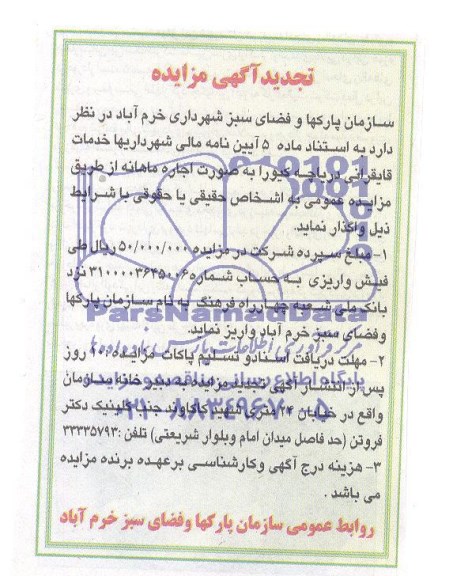 تجدید آگهی مزایده
سازمان پارکها و فضای سبز شهرداری خرم آباد در نظر
دارد به استناد ماده ۵ آیین نامه مالی شهرداریها خدمات
قایقرانی دریاچه کیو را به صورت اجاره ماهانه از طریق
مزایده عمومی به اشخاص حقیقی یا حقوقی با شرایط
ذیل واگذار نماید.
۱- مبلغ سپرده شرکت در مزایده ۵۰/۰۰۰/۰۰۰ ریال طی
فیش واریزی به حساب شماره نزد
بانک ملی شعبه چهارراه فرهنگ به نام سازمان پارکها
وفضای سبز خرم آباد واریز نماید.
۲- مهلت دریافت اسناد و تسلیم پاکات مزایده ۱۰ روز
پس از انتشار آگهی تجدید مزایده به دبیرخانه سازمان
واقع در خیابان ۲۴ متری شهید کاکاوند جنب کلینیک دکتر
فروتن (حد فاصل میدان امام وبلوار شریعتی) تلفن: ۳۳۳۳۵۷۹۳
۳- هزینه درج آگهی وکارشناسی برعهده برنده مزایده
می باشد.
روابط عمومی سازمان پارکها وفضای سبز خرم آباد
ParsNamadData
۰۲۱-۸۸۳۴۹۶۷۰-۵